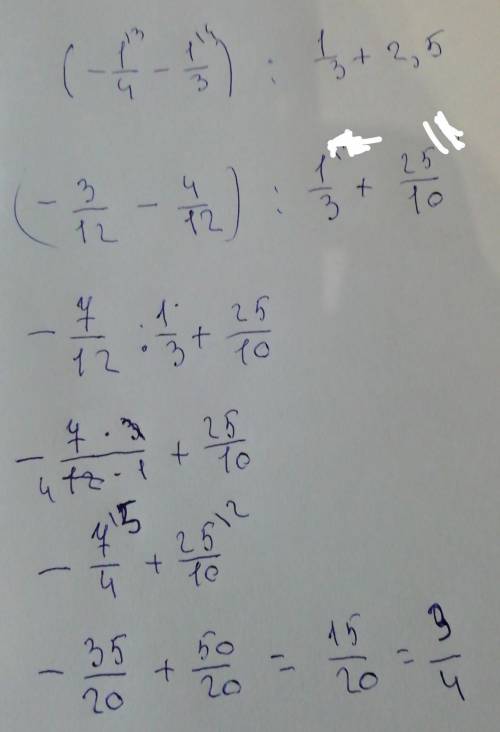 (-1/4\3 - 1/3\4) : 1/3 + 2,5
(-3/12 - 4/12) : 1/3 + 25/10
-7/12 : 1/3 + 25/10
-7·3/4 12·1 + 25/10
-7/4\5 + 25/10\2
-35/20 + 50/20 = 15/20 = 3/4